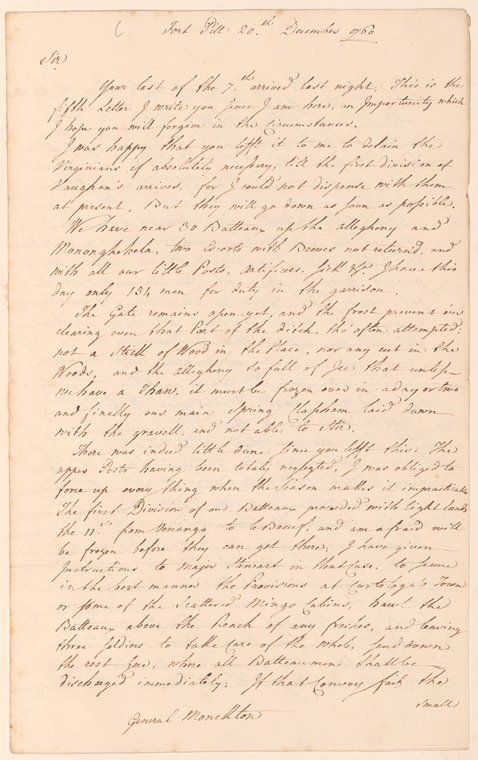 Fort Pitt 20.th December 1760
Sir
Your last of the 7.th arrived last night; This is the
fifth Letter I write you since I am here, an Importunity which
I hope you will forgive in the Circumstances.
I was happy that you lefft it to me to detain the
Virginians if absolutely necessary, till the first division of
Vaughan's arrives, for I could not dispense with them
at present. But they will go down as soon as possible.
We have near 30 Batteaux up the allegheny and
Mononghehela, two Escorts with Beeves not return'd, and
with all our little Posts, artificers, sick &ca. I have this
day only 154 men for duty in the garrison.
The Gate remains open yet, and the frost prevent our
clearing even that Part of the ditch, tho' often attempted;
not a Stick of Wood in the Place, nor any cut in the
Woods, and the allegheny so full of Ice that unless
we have a Thaw, it must be frozen over in a day or two
and finally our main Spring Clapham laid down
with the gravell, and not able to stir.
There was indeed little done since you lefft this: The
upper Posts having been totaly neglected, I was obliged to
force up every thing when the Season makes it impracticable
The first Division of our Batteaux proceeded with light loads
the 11.th from Venango to LeBoeuf, and am afraid will
be frozen before they can get there; I have given
Instructions to Major Stewart in that Case, to secure
in the best manner the Provisions at Custologa's Town
or some of the Scattered Mingo Cabins, hawl the
Batteaux above the Reach of any freshes, and leaving
three Soldiers to take Care of the whole, send down
the rest here, where all Batteaumen shall be
discharged immediately; If that Convoy fail the
small
General Monckton